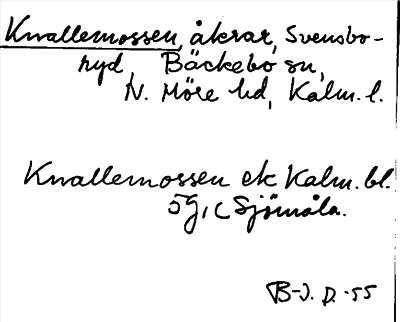 Knallemossen, åkrar, Svensbo-
ryd, Bäckebo sn,
N. Möre hd, Kalm. l.
Knallemossen ek Kalm. bl.
5g, c Sjömåla.
B-J. D. -55